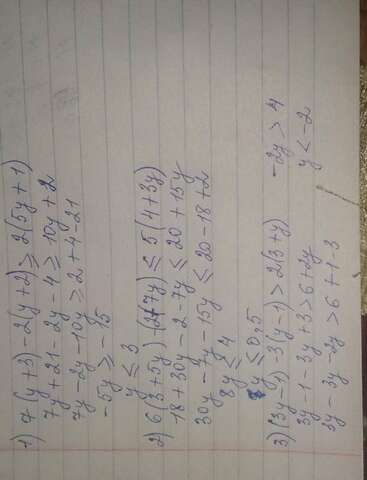 1) 7(y+3) -2(y+2) ≥ 2(5y+1)
7y+21-2y-4 ≥ 10y+2
7y-2y-10y ≥ 2+4-21
-5y ≥ -15
y ≤ 3
2) 6(3+5y)-(2+7y) ≤ 5(4+3y)
18+30y-2-7y ≤ 20+15y
30y-7y-15y ≤ 20-18+2
8y ≤ 4
y ≤ 0,5
3) (3y-1)-3(y-1)>2(3+y)
3y-1-3y+3>6+2y
3y-3y-2y>6+1-3
-2y > 4
y < -2